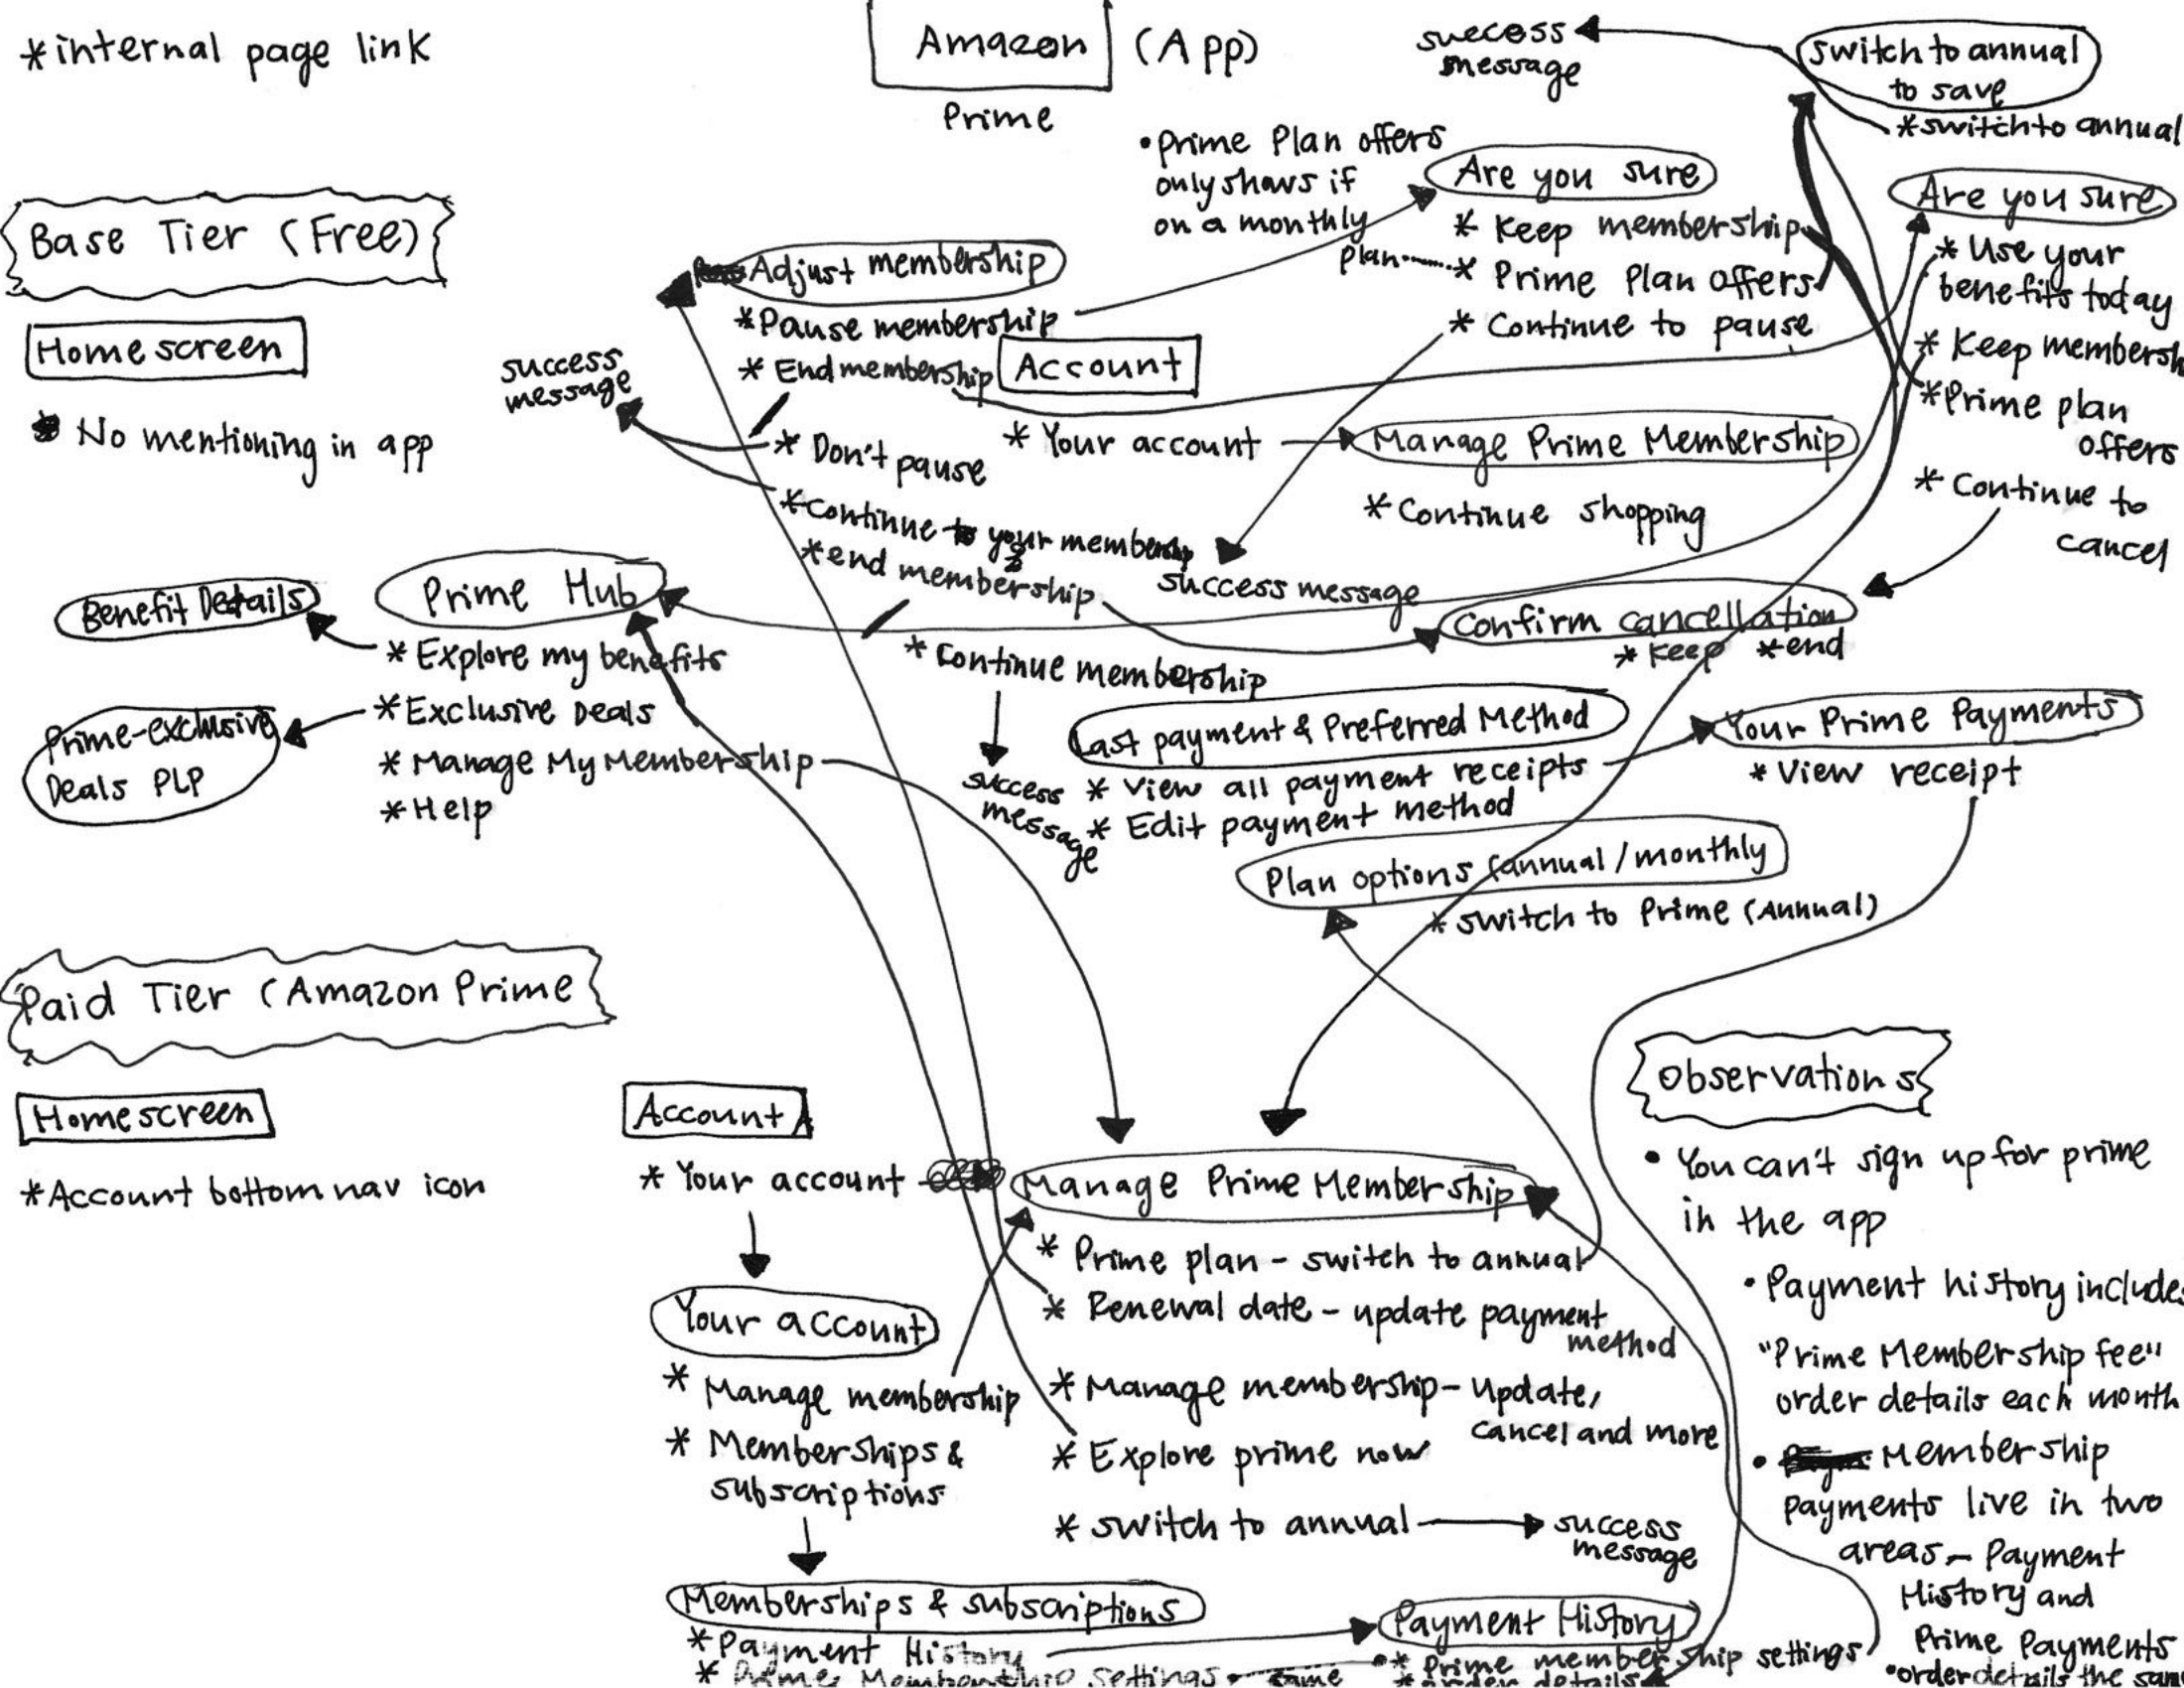 *internal page link
Amazon (App)
Prime
success
message
switch to annual
to save
*switch to annual
• Prime Plan offers
only shows if
on a monthly
plan
Are you sure
* Keep membership
* Prime Plan offers
* Continue to pause
Are you sure
* Use your
benefits today
* Keep membersh
*Prime plan
offers
* Continue to
cancel
Base Tier (Free)
Homescreen
No mentioning in app
Adjust membership
*Pause membership
* End membership
Account
success
message
* Don't pause
*Continue your membership
*end membership
* Your account
Manage Prime Membership
*Continue shopping
success message
Confirm cancellation
* Keep *end
* Continue membership
success
message
Benefit Details
Prime Hub
* Explore my benefits
*Exclusive Deals
* Manage My Membership
*Help
Prime-exclusive
Deals PLP
Last payment & Preferred Method
* View all payment receipts
* Edit payment method
Your Prime Payments
* View receipt
Plan options (annual/monthly
*switch to Prime (Annual)
Paid Tier (Amazon Prime
Homescreen
*Account bottom nav icon
Account
* Your account
Your account
* Manage membership
* Memberships &
subscriptions
Manage Prime Membership
* Prime plan - switch to annual
* Renewal date - update payment
method
* Manage membership - update,
cancel and more
* Explore prime now
* switch to annual
success
message
Memberships & subscriptions
*Payment History
* Prime Membership settings same
Payment History
* Prime membership settings
*order details
Observations
• You can't sign up for prime
in the app
• Payment history includes
"Prime Membership fee"
order details each month
• Membership
payments live in two
areas - Payment
History and
Prime Payments
•order details the sam